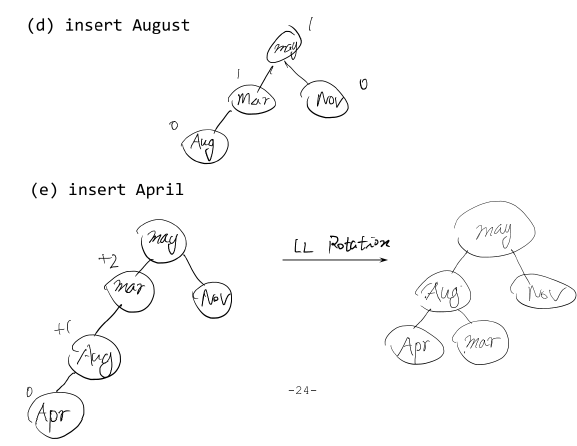 (d) insert August
1
may
1
Mar
Nov
0
0
Aug
(e) insert April
may
+2
mar
Nov
+1
Aug
0
Apr
LL Rotation
may
Aug
Nov
Apr
mar
-24-